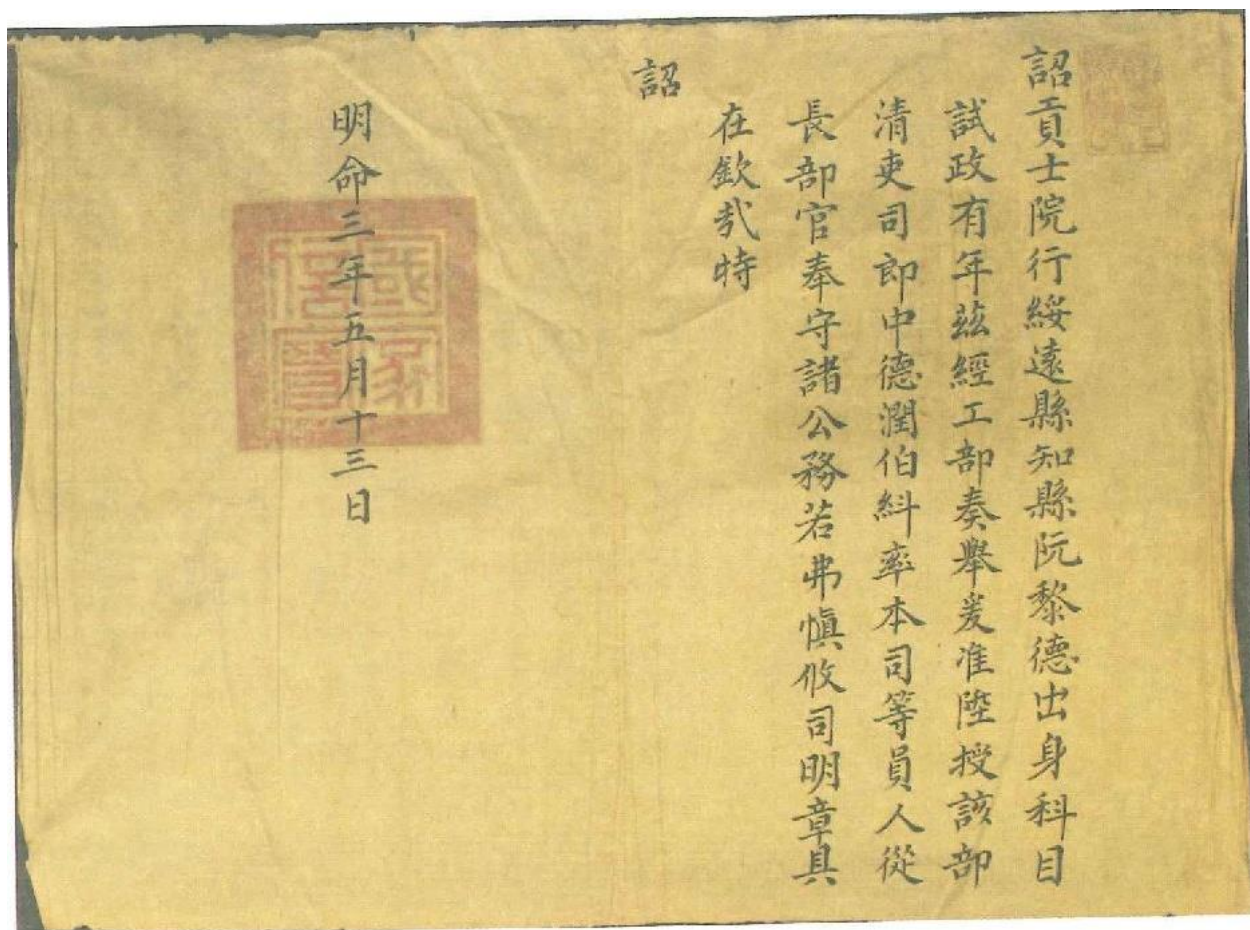 詔貢士院行綏遠縣知縣阮黎德出身科目
試政有年茲經工部奏舉爰准陞授該部
清吏司郎中德潤伯糾率本司等員人從
長部官奉守諸公務若弗慎攸司明章具
在欽㢤特
詔
明命三年五月十三日
國家信寶